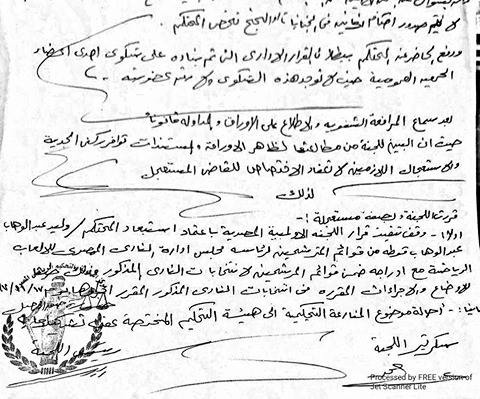 لا يقيم صدور احكام نهائيه فى الجنايات او الجنح تخص المحتكم
ودفع الحاضر عن المحتكم ببطلان القرار الادارى التى تم بناءه على شكوى احدى اعضاء
الجمعيه العمومية حيث لا توجد هذه الشكوى ولا
بعد سماع المرافعة الشفوية والاطلاع على الاوراق والمداوله قانوناً
حيث ان البين للجنة من مطالعتها لظاهر الاوراق والمستندات توافر ركنى الجدية
والاستعجال اللازمين لانعقاد الاختصاص للقاضى المستعجل
لذلك
قررت اللجنة وبصفه مستعجلة :-
اولا :- وقف تنفيذ قرار اللجنه الاولمبية المصرية باعتماد استبعاد المحتكم / وليد عبد الوهاب
عبد الوهاب من قوائم المترشحين لرئاسه مجلس ادارة النادى المصرى للالعاب
الرياضية مع ادراجه ضمن قوائم المرشحين لانتخابات النادى المذكور
الاوضاع والاجراءات المقرره فى انتخابات النادى المذكور المقرر
ثانيا :- احالة موضوع المنازعة التحكيمية الى هيئة التحكيم المختصة عقب تشكيلها
سكرتير اللجنة
اللجنة
Processed by FREE version of
Jet Scanner Lite